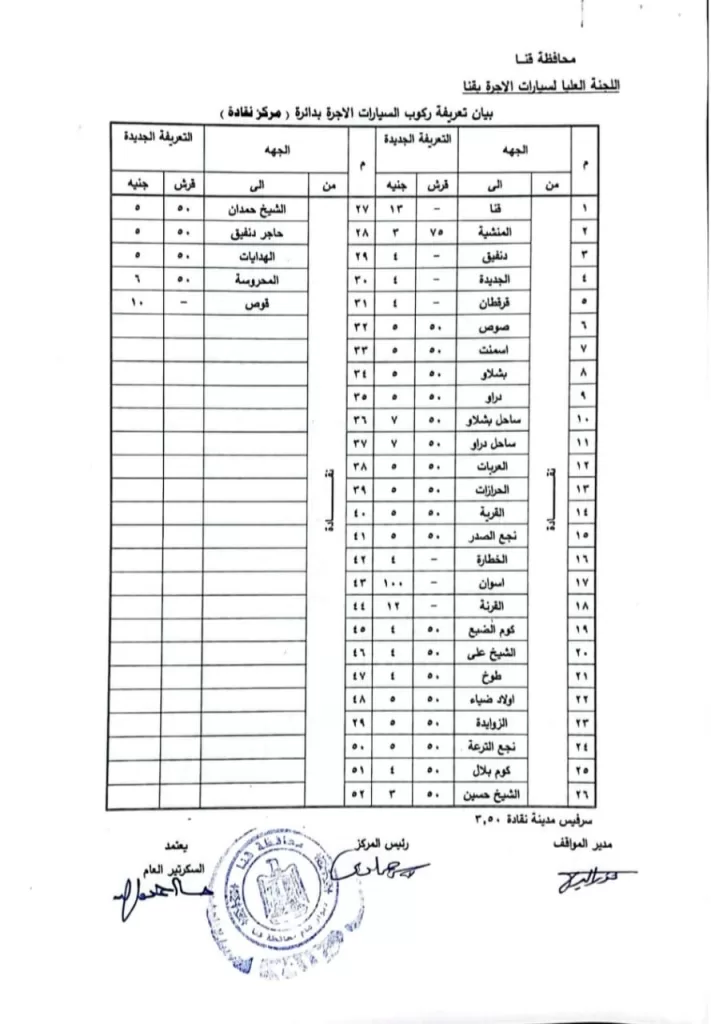 محافظة قنـا
اللجنة العليا لسيارات الاجرة بقنا
بيان تعريفة ركوب السيارات الاجرة بدائرة ( مركز نقادة )
م الجهه التعريفة الجديدة م الجهه التعريفة الجديدة
من الى قرش جنيه من الى قرش جنيه
نقـــادة نقـــادة
١ قنا – ١٣ ٢٧ الشيخ حمدان ٥٠ ٥
٢ المنشية ٧٥ ٣ ٢٨ حاجر دنفيق ٥٠ ٥
٣ دنفيق – ٤ ٢٩ الهدايات ٥٠ ٥
٤ الجديدة – ٤ ٣٠ المحروسة ٥٠ ٦
٥ قرقطان – ٤ ٣١ قوص – ١٠
٦ صوص ٥٠ ٥ ٣٢
٧ اسمنت ٥٠ ٥ ٣٣
٨ بشلاو ٥٠ ٥ ٣٤
٩ دراو ٥٠ ٥ ٣٥
١٠ ساحل بشلاو ٥٠ ٧ ٣٦
١١ ساحل دراو ٥٠ ٧ ٣٧
١٢ العربات ٥٠ ٥ ٣٨
١٣ الحرازات ٥٠ ٥ ٣٩
١٤ القرية ٥٠ ٥ ٤٠
١٥ نجع الصدر ٥٠ ٥ ٤١
١٦ الخطارة – ٤ ٤٢
١٧ اسوان – ١٠٠ ٤٣
١٨ القرنة – ١٢ ٤٤
١٩ كوم الضبع ٥٠ ٤ ٤٥
٢٠ الشيخ على ٥٠ ٤ ٤٦
٢١ طوخ ٥٠ ٤ ٤٧
٢٢ اولاد ضياء ٥٠ ٥ ٤٨
٢٣ الزوايدة ٥٠ ٥ ٢٩
٢٤ نجع الترعة ٥٠ ٥ ٥٠
٢٥ كوم بلال ٥٠ ٤ ٥١
٢٦ الشيخ حسين ٥٠ ٣ ٥٢
سرفيس مدينة نقادة ٣,٥٠
مدير المواقف رئيس المركز يعتمد
السكرتير العام
محافظة قنا
ديوان عام محافظة قنا